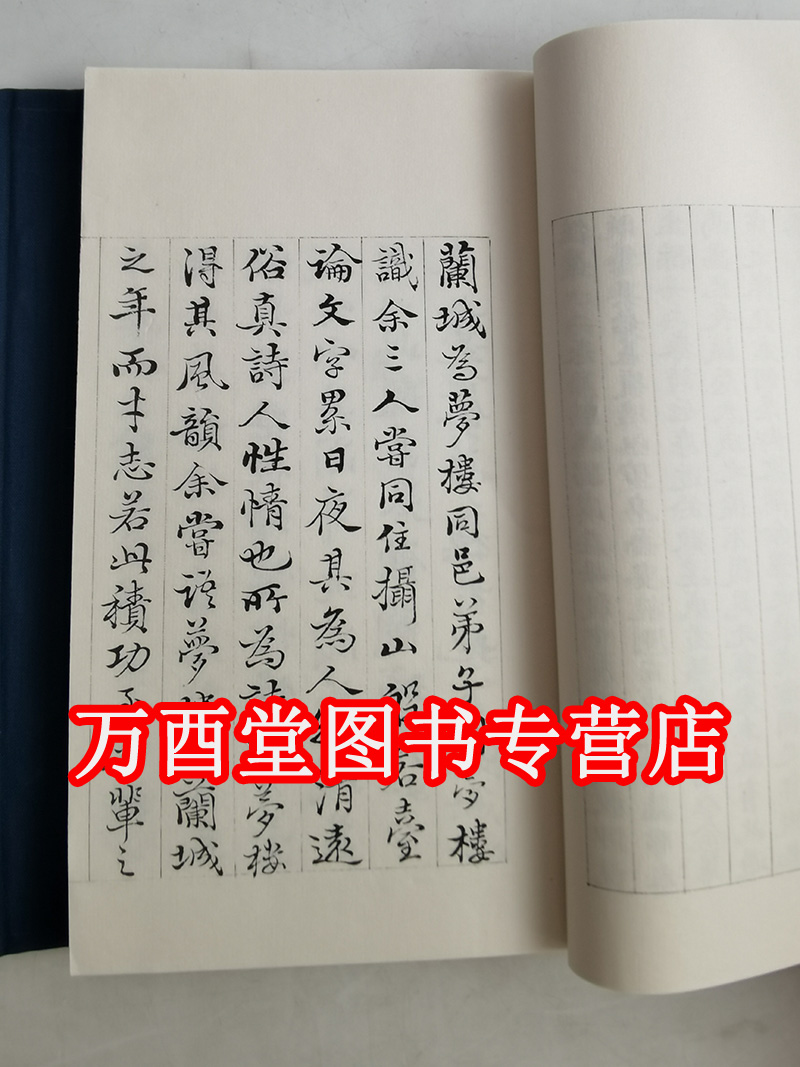 蘭城為夢樓同邑弟子夢樓
識余三人嘗同住攝山般若臺
論文字累日夜其為人清遠
俗真詩人性情也所為詩夢樓
得其風韻余嘗語夢樓蘭城
之年而才志若此積功輩之
万酉堂图书专营店